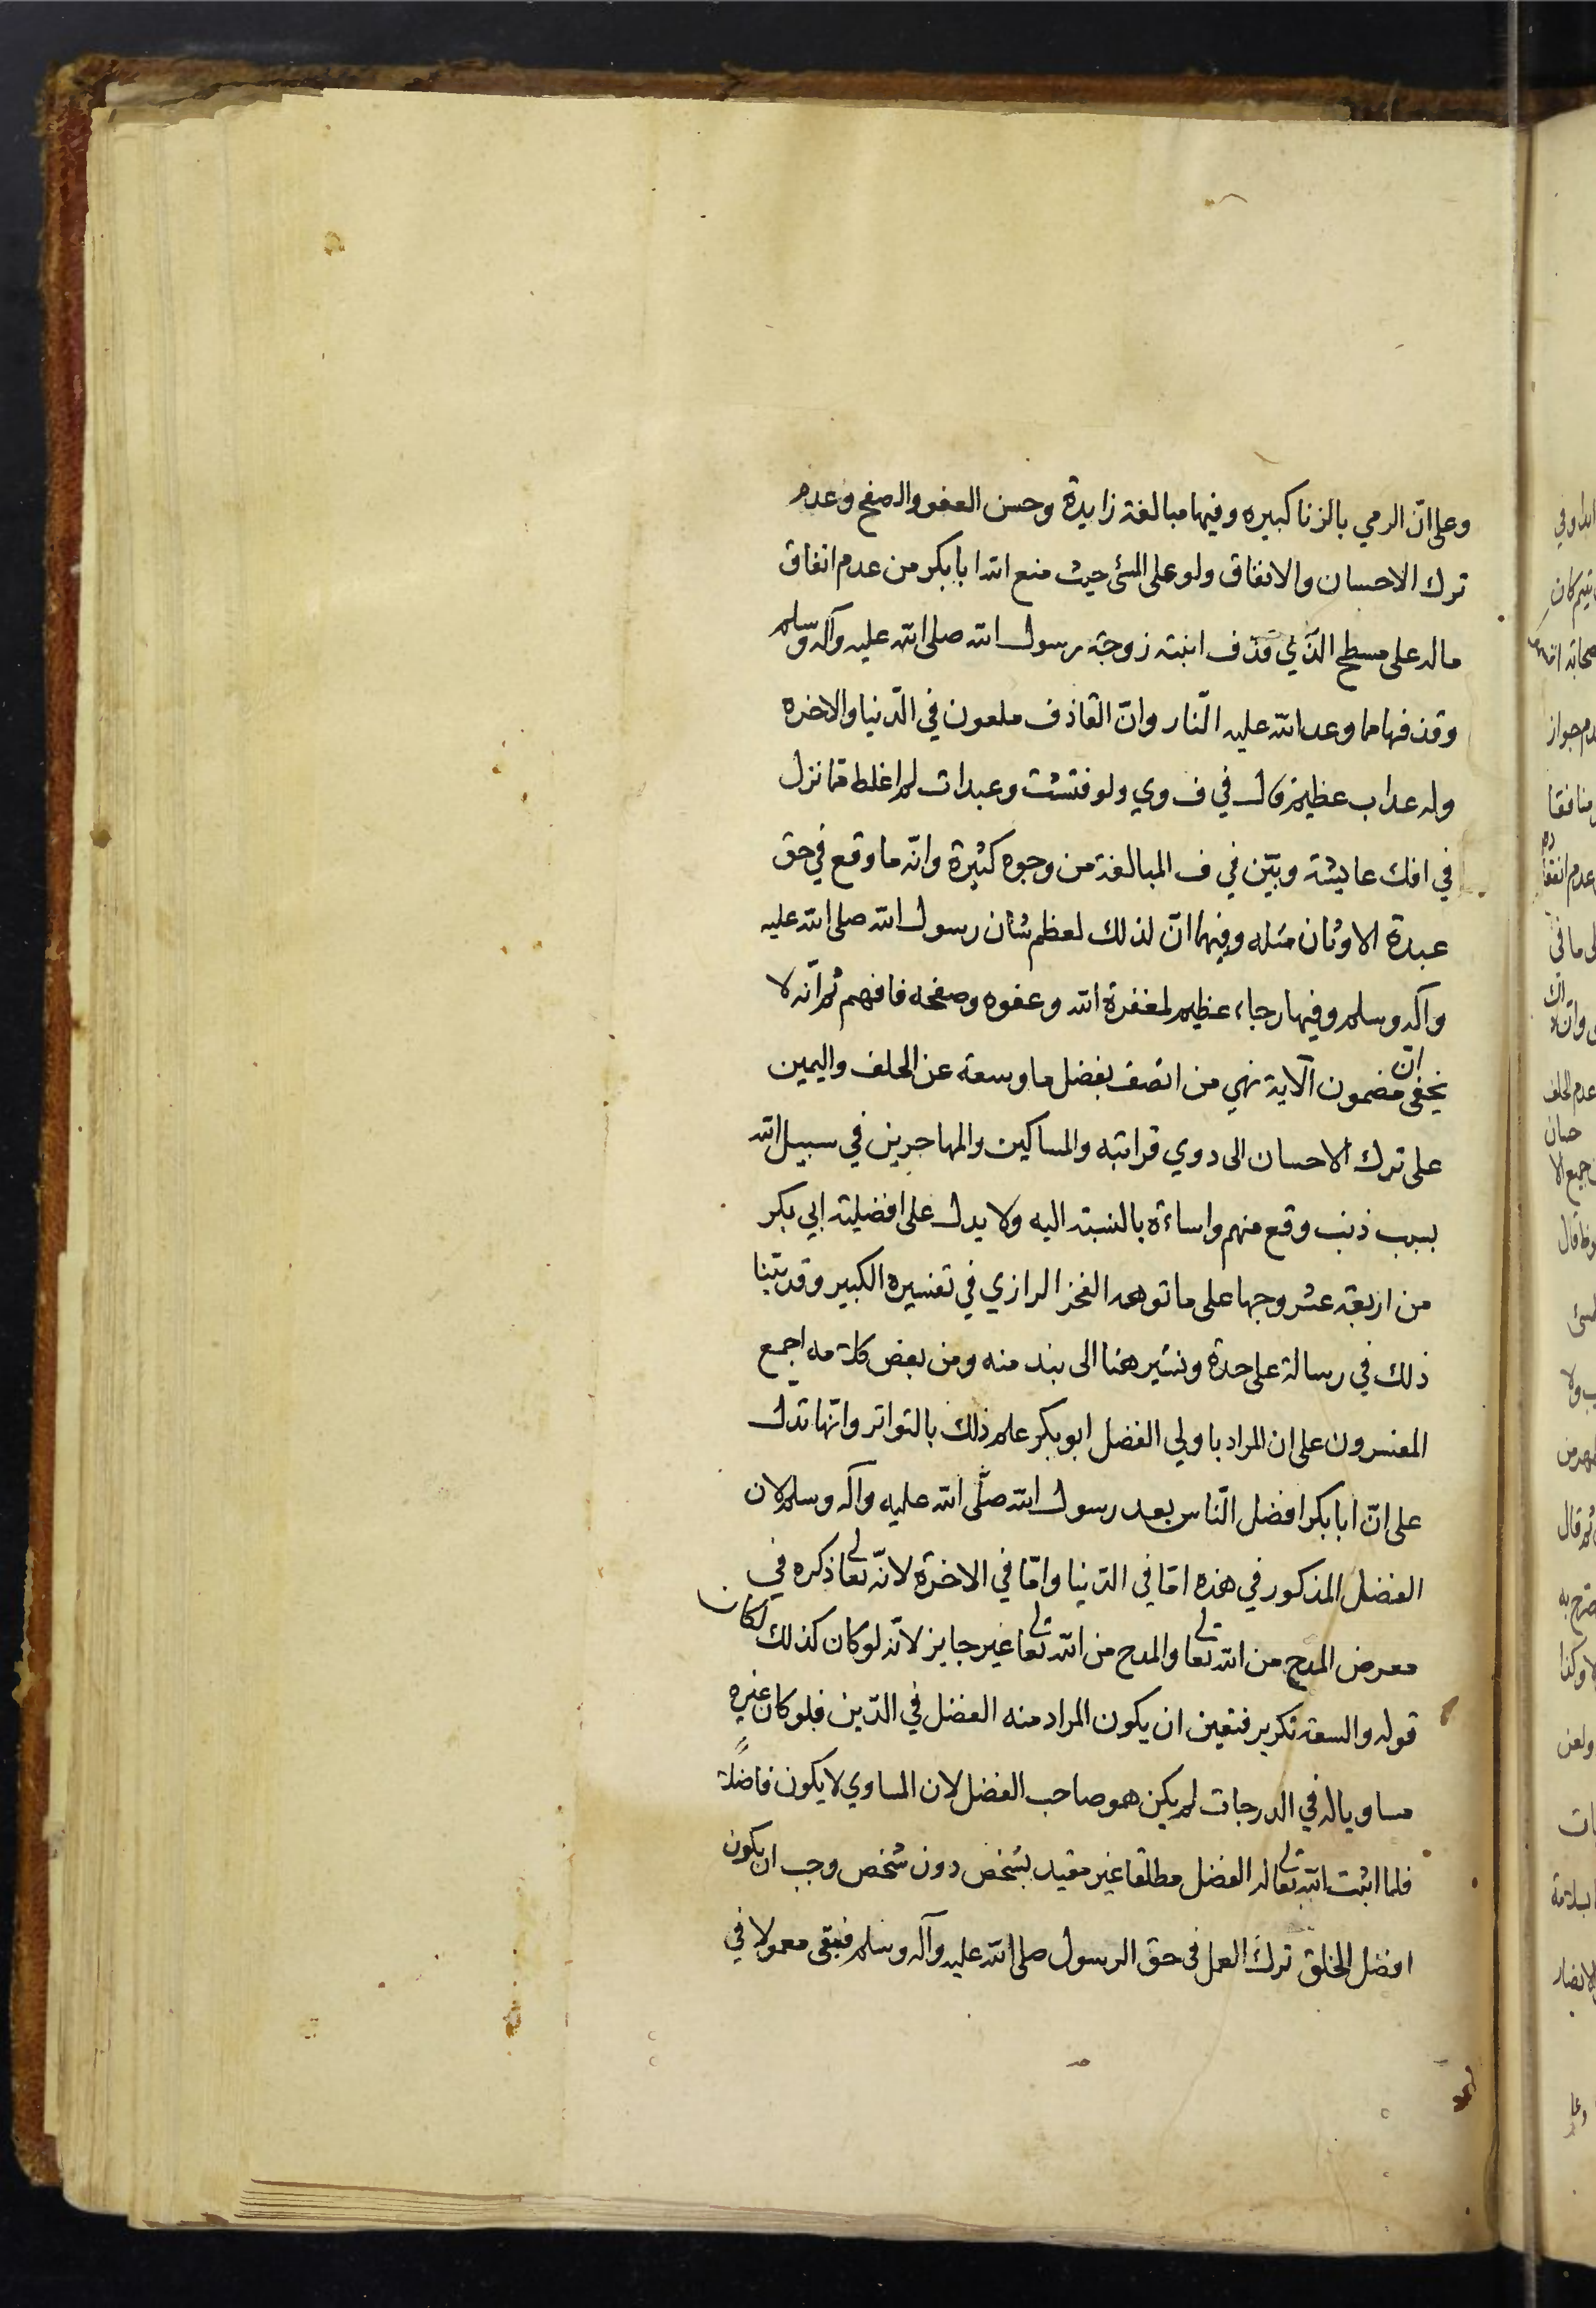 وعلى انّ الرمي بالزنا كبيره وفيها مبالغة زايدة وحسن العفو والصفح وعدم
ترك الاحسان والانفاق ولو على المسئ حيث منع الله ابا بكر من عدم انفاق
ماله على مسطح الذّي قذف ابنته زوجة رسول الله صلى الله عليه وآله وسلم
وقذفها مما وعد الله عليه النّار وانّ القاذف ملعون في الدّنيا والاخره
وله عذاب عظيم قال في ف وي ولو فتشت وعيدات لم اغلظ مما نزل
في افك عايشة وبيّن في ف المبالغة من وجوه كثيرة وانّه ما وقع في حق
عبدة الاوثان مثله وفيها انّ لذلك لعظم شان رسول الله صلى الله عليه
وآله وسلم وفيها رجاء عظيم لمغفرة الله وعفوه وصفحه فافهم ثم انّه لا
يخفى انّ مضمون الآية نهي من اتصف بفضل ما وسعة عن الحلف واليمين
على ترك الاحسان الى دوي قرابته والمساكين والمهاجرين في سبيل الله
بسبب ذنب وقع منهم واساءة بالنسبة اليه ولا يدل على افضلية ابي بكر
من اربعة عشر وجها على ما توهمه الفخر الرازي في تفسيره الكبير وقد بيّنا
ذلك في رسالة على حدة ونشير هنا الى نبذ منه ومن بعض كلامه اجمع
المفسرون على ان المراد باولي الفضل ابو بكر علم ذلك بالتواتر وانّها تدل
على انّ ابا بكر افضل النّاس بعد رسول الله صلّى الله عليه وآله وسلم لان
الفضل المذكور في هذه امّا في الدّنيا وامّا في الاخرة لانّه تعالى ذكره في
معرض المدح من الله تعالى والمدح من الله تعالى غير جايز لانّه لو كان كذلك لكان
قوله والسعة تكرير فتعين ان يكون المراد منه الفضل في الدّين فلو كان غيره
مساويا له في الدرجات لم يكن هو صاحب الفضل لان المساوي لا يكون فاضلاً
فلما اثبت الله تعالى له الفضل مطلقا غير مقيد بشخص دون شخص وجب ان يكون
افضل الخلق ترك العمل في حق الرسول صلى الله عليه وآله وسلم فيبقى معمولا في